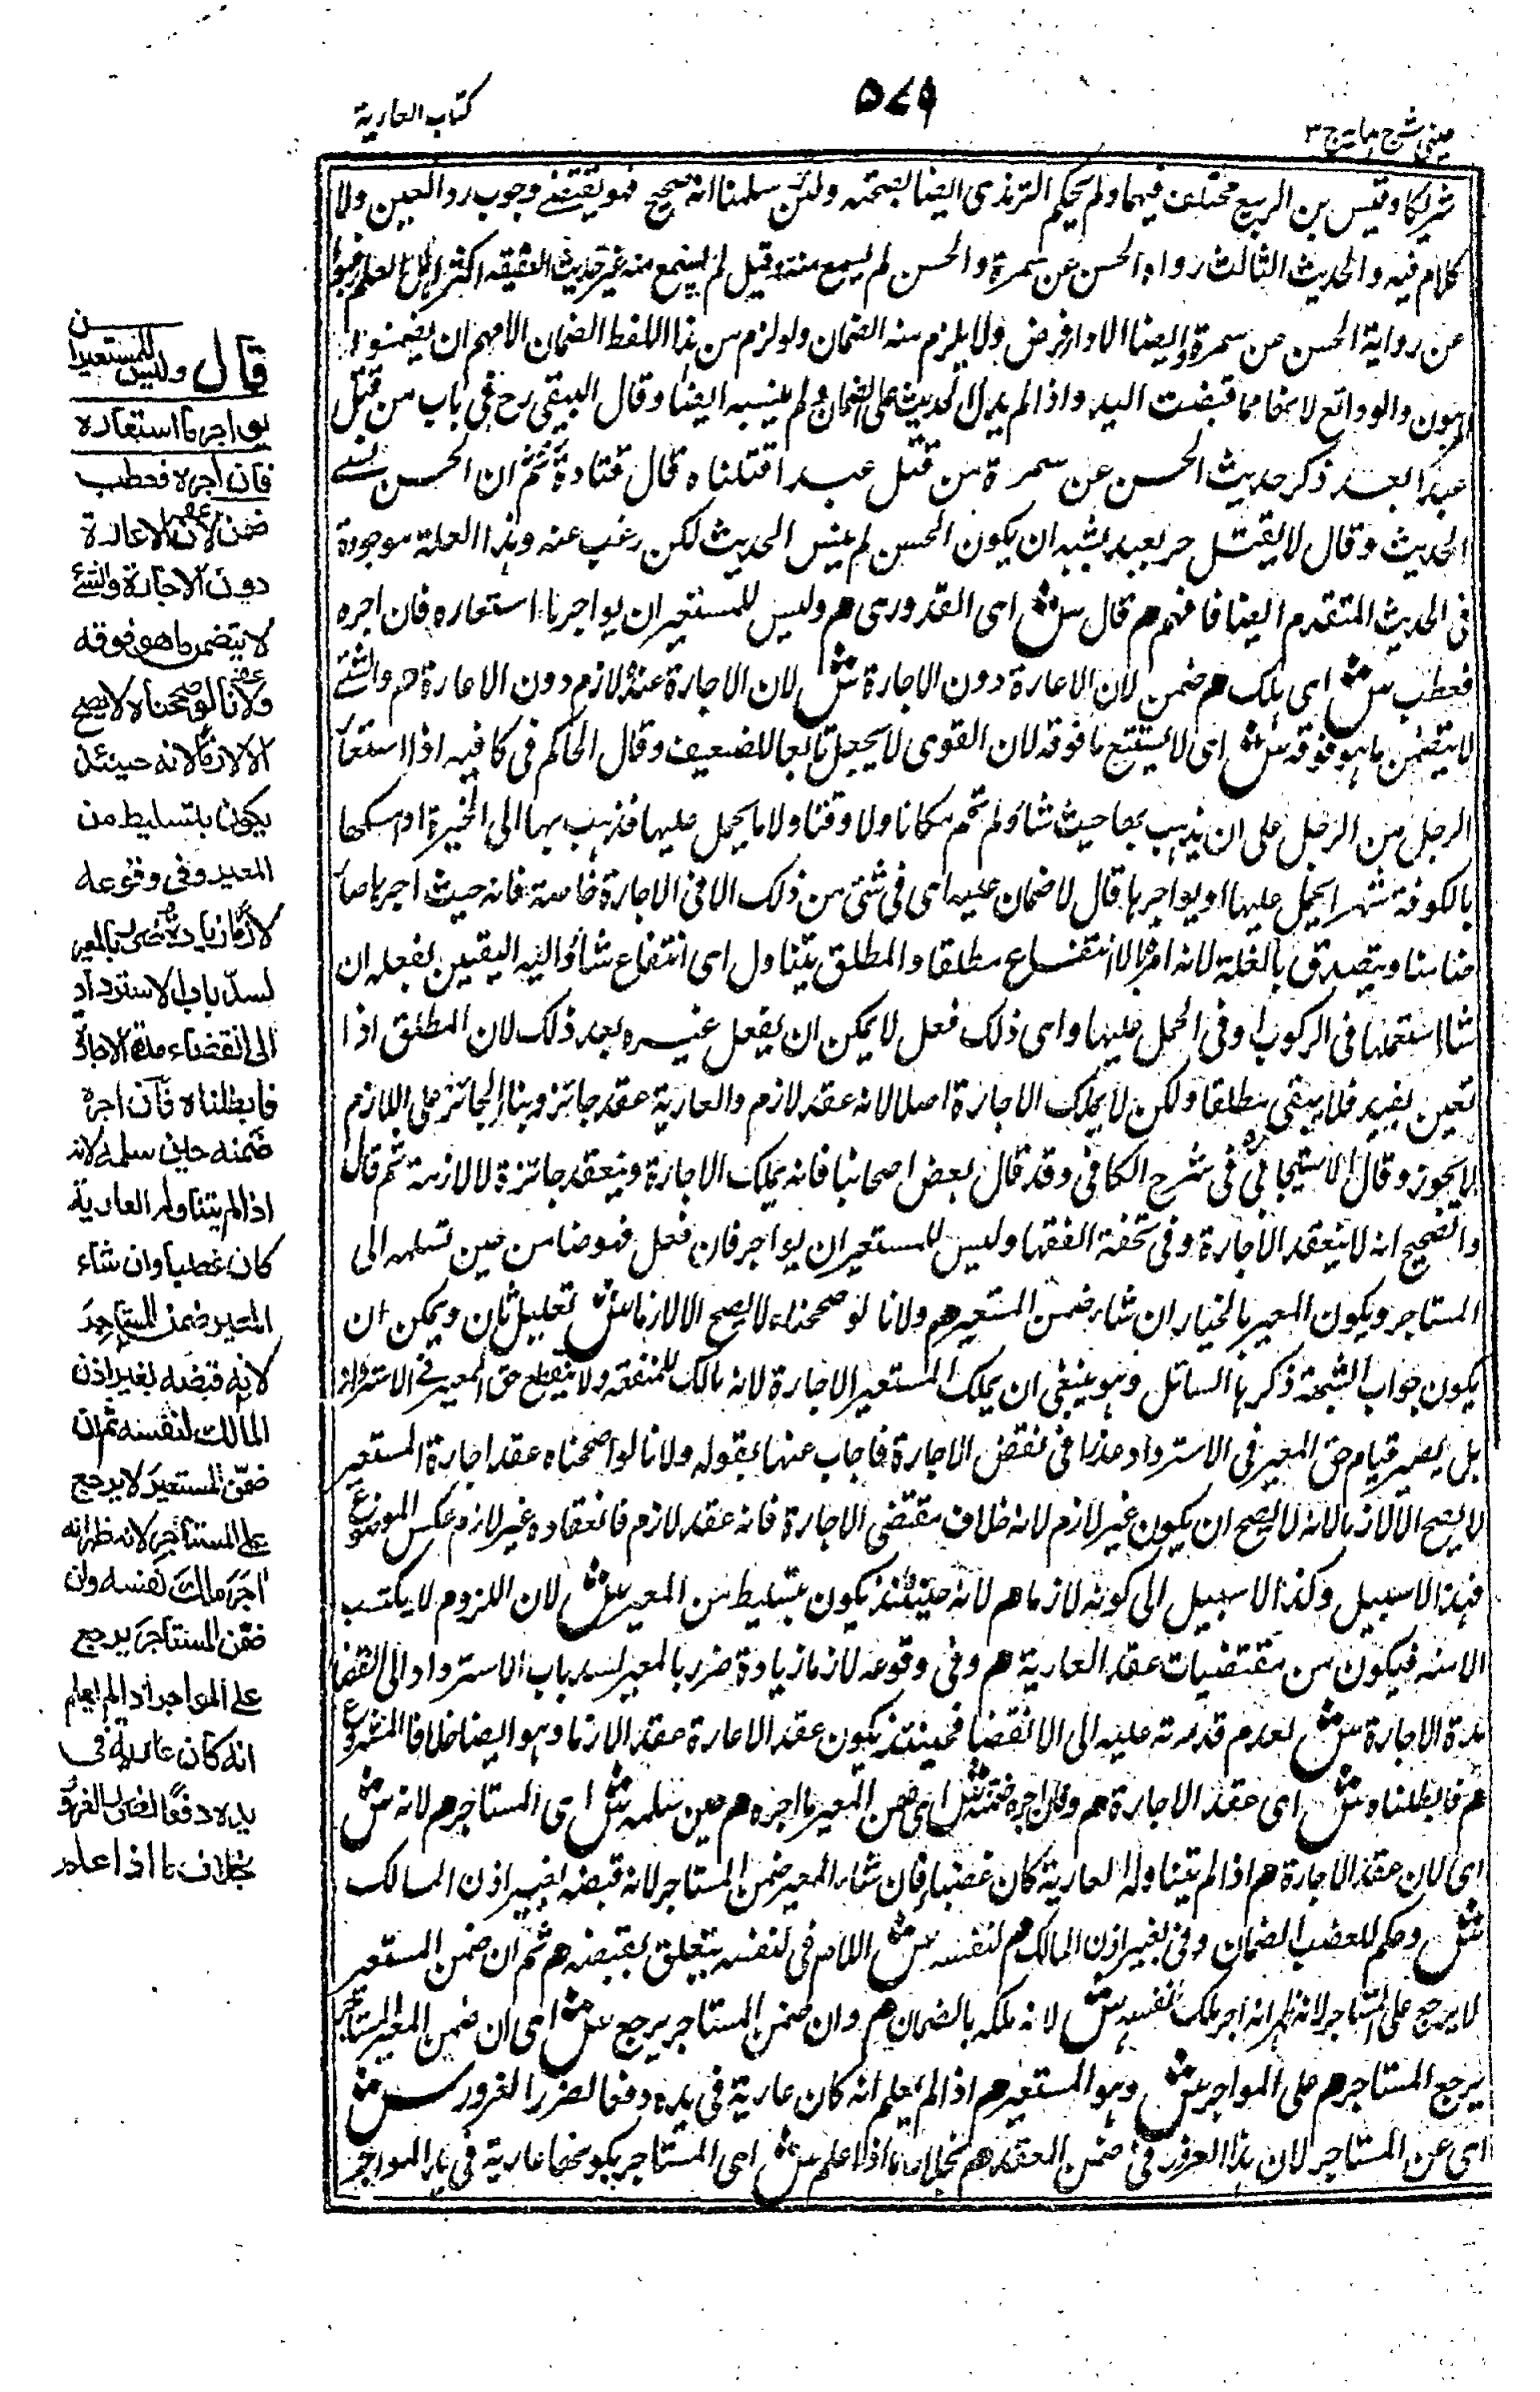 عينى شرح هدايه ج ٣
٥٧٩
كتاب العارية
شريكا وقيس بن الربيع مختلف فيهما ولم يحكم الترمذى ايضا بصحته ولئن سلمنا انه صحيح فهو يقتضے وجوب رد العين ولا
كلام فيه والحديث الثالث رواه الحسن عن سمرة والحسن لم يسمع منه وقيل لم يسمع منه غير حديث العقيقه اكثر اهل العلم
عن رواية الحسن عن سمرة وايضا الاداء فرض ولا يلزم منه الضمان ولو لزم من هذا اللفظ الضمان لامهم ان يضمنوا
الرهون والودائع لانها مما قبضت اليد واذا لم يدل الحديث على الضمان ولم ينسبه ايضا وقال البيهقى رح فى باب من قتل
عبد العبد ذكر حديث الحسن عن سمرة من قتل عبدا قتلناه قال قتادة ثم ان الحسن نسے
الحديث وقال لا يقتل حر بعبد يشبه ان يكون الحسن لم ينس الحديث لكن رغب عنه وهذا العلة موجودة
فى الحديث المتقدم ايضا فافهم هم قال ش اى القدورى هم وليس للمستعير ان يواجر ما استعاره فان اجره
فعطب ش اى هلك هم ضمن لان الاعارة دون الاجارة ش لان الاجارة عقد لازم دون الاعارة هم والشئے
لا يتضمن ما هو فوقه ش اى لا يستتبع ما فوقه لان القوى لا يجعل تابعا للضعيف وقال الحاكم فى كافيه اذا استعار
الرجل من الرجل على ان يذهب بها حيث شاء ولم يسم مكانا ولا وقتا ولا ما يحمل عليها فذهب بها الى الحيرة او امسكها
بالكوفة شهرا يحمل عليها او يواجرها قال لا ضمان عليه اى فى شئ من ذلك الا فى الاجارة خاصة فانه حيث اجرها صار
ضامنا ويتصدق بالغلة لانه امر بالانتفاع مطلقا والمطلق يتناول اى انتفاع شاء واليه اليقين بفعله ان
شاء استعملها فى الركوب او فى الحمل عليها واى ذلك فعل لا يمكن ان يفعل غيره بعد ذلك لان المطلق اذا
تعين بقيد فلا يبقى مطلقا ولكن لا يملك الاجارة اصلا لانه عقد لازم والعارية عقد جائز وبناء الجائز على اللازم
لا يجوز وقال الاسبيجابى فى شرح الكافى وقد قال بعض اصحابنا فانه يملك الاجارة وينعقد جائزة لا لازمة ثم قال
والصحيح انه لا ينعقد الاجارة وفى تحفة الفقها وليس للمستعير ان يواجر فان فعل فهو ضامن حين تسلمه الى
المستاجر ويكون المعير بالخيار ان شاء ضمن المستعير هم ولانا لو صححناه لا يصح الا لازما ش تعليل ثان ويمكن ان
يكون جواب الشبهة ذكرها السائل وهو ينبغى ان يملك المستعير الاجارة لانه مالك للمنفعة ولا ينقطع حق المعير فى الاسترداد
بل يصير قيام حق المعير فى الاسترداد عذرا فى نقض الاجارة فاجاب عنها بقوله ولانا لو صححناه عقد اجارة المستعير
لا يصح الا لازما لانه لا يصح ان يكون غير لازم لانه خلاف مقتضى الاجارة فانه عقد لازم فانعقاده غير لازم عكس الموضوع
فهذا لا سبيل وكذا لا سبيل الى كونه لازما هم لانه حينئذ يكون بتسليط من المعير ش لان اللزوم لا يكتسب
الا منه فيكون من مقتضيات عقد العارية هم وفى وقوعه لازما زيادة ضرر بالمعير لسد باب الاسترداد الى انقضا
مدة الاجارة ش لعدم قدرته عليه الى الانقضا فحينئذ يكون عقد الاعارة عقدا لازما وهو ايضا خلاف المشروع
هم فابطلناه ش اى عقد الاجارة هم وفان اجره ضمنه ش اى ضمن المعير ما اجره هم حين سلمه ش اى المستاجر هم لانه ش
اى لان عقد الاجارة هم اذا لم يتناوله العارية كان غصبا فان شاء المعير ضمن المستاجر لانه قبضه بغير اذن المالك
ش وحكم للغصب الضمان وفى بغير اذن المالك هم لنفسه ش اللام فى لنفسه يتعلق بقبضه هم ثم ان ضمن المستعير
لا يرجع على المستاجر لانه ظهر انه اجر ملك نفسه ش لانه ملكه بالضمان هم وان ضمن المستاجر يرجع ش اى ان ضمن المعير المستاجر
يرجع المستاجر هم على المواجر ش وهو المستعير هم اذا لم يعلم انه كان عارية فى يده دفعا لضرر الغرور ش
اى عن المستاجر لان هذا الغرور فى ضمن العقد هم بخلاف ما اذا علم ش اى المستاجر بكونها عارية فى يد المواجر
قال وليس للمستعير ان
يواجر ما استعاره
فان اجره فعطب
ضمن لان الاعارة
دون الاجارة والشئ
لا يتضمن ما هو فوقه
ولانا لو صححناه لا يصح
الا لازما لانه حينئذ
يكون بتسليط من
المعير وفى وقوعه
لازما زيادة ضرر بالمعير
لسد باب الاسترداد
الى انقضاء مدة الاجارة
فابطلناه فان اجره
ضمنه حين سلمه لانه
اذا لم يتناوله العارية
كان غصبا وان شاء
المعير ضمن المستاجر
لانه قبضه بغير اذن
المالك لنفسه ثم ان
ضمن المستعير لا يرجع
على المستاجر لانه ظهر انه
اجر ملك نفسه وان
ضمن المستاجر يرجع
على المواجر اذا لم يعلم
انه كان عارية فى
يده دفعا لضرر الغرور
بخلاف ما اذا علم